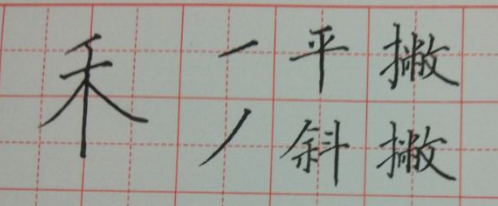 禾
㇀平撇
丿斜撇